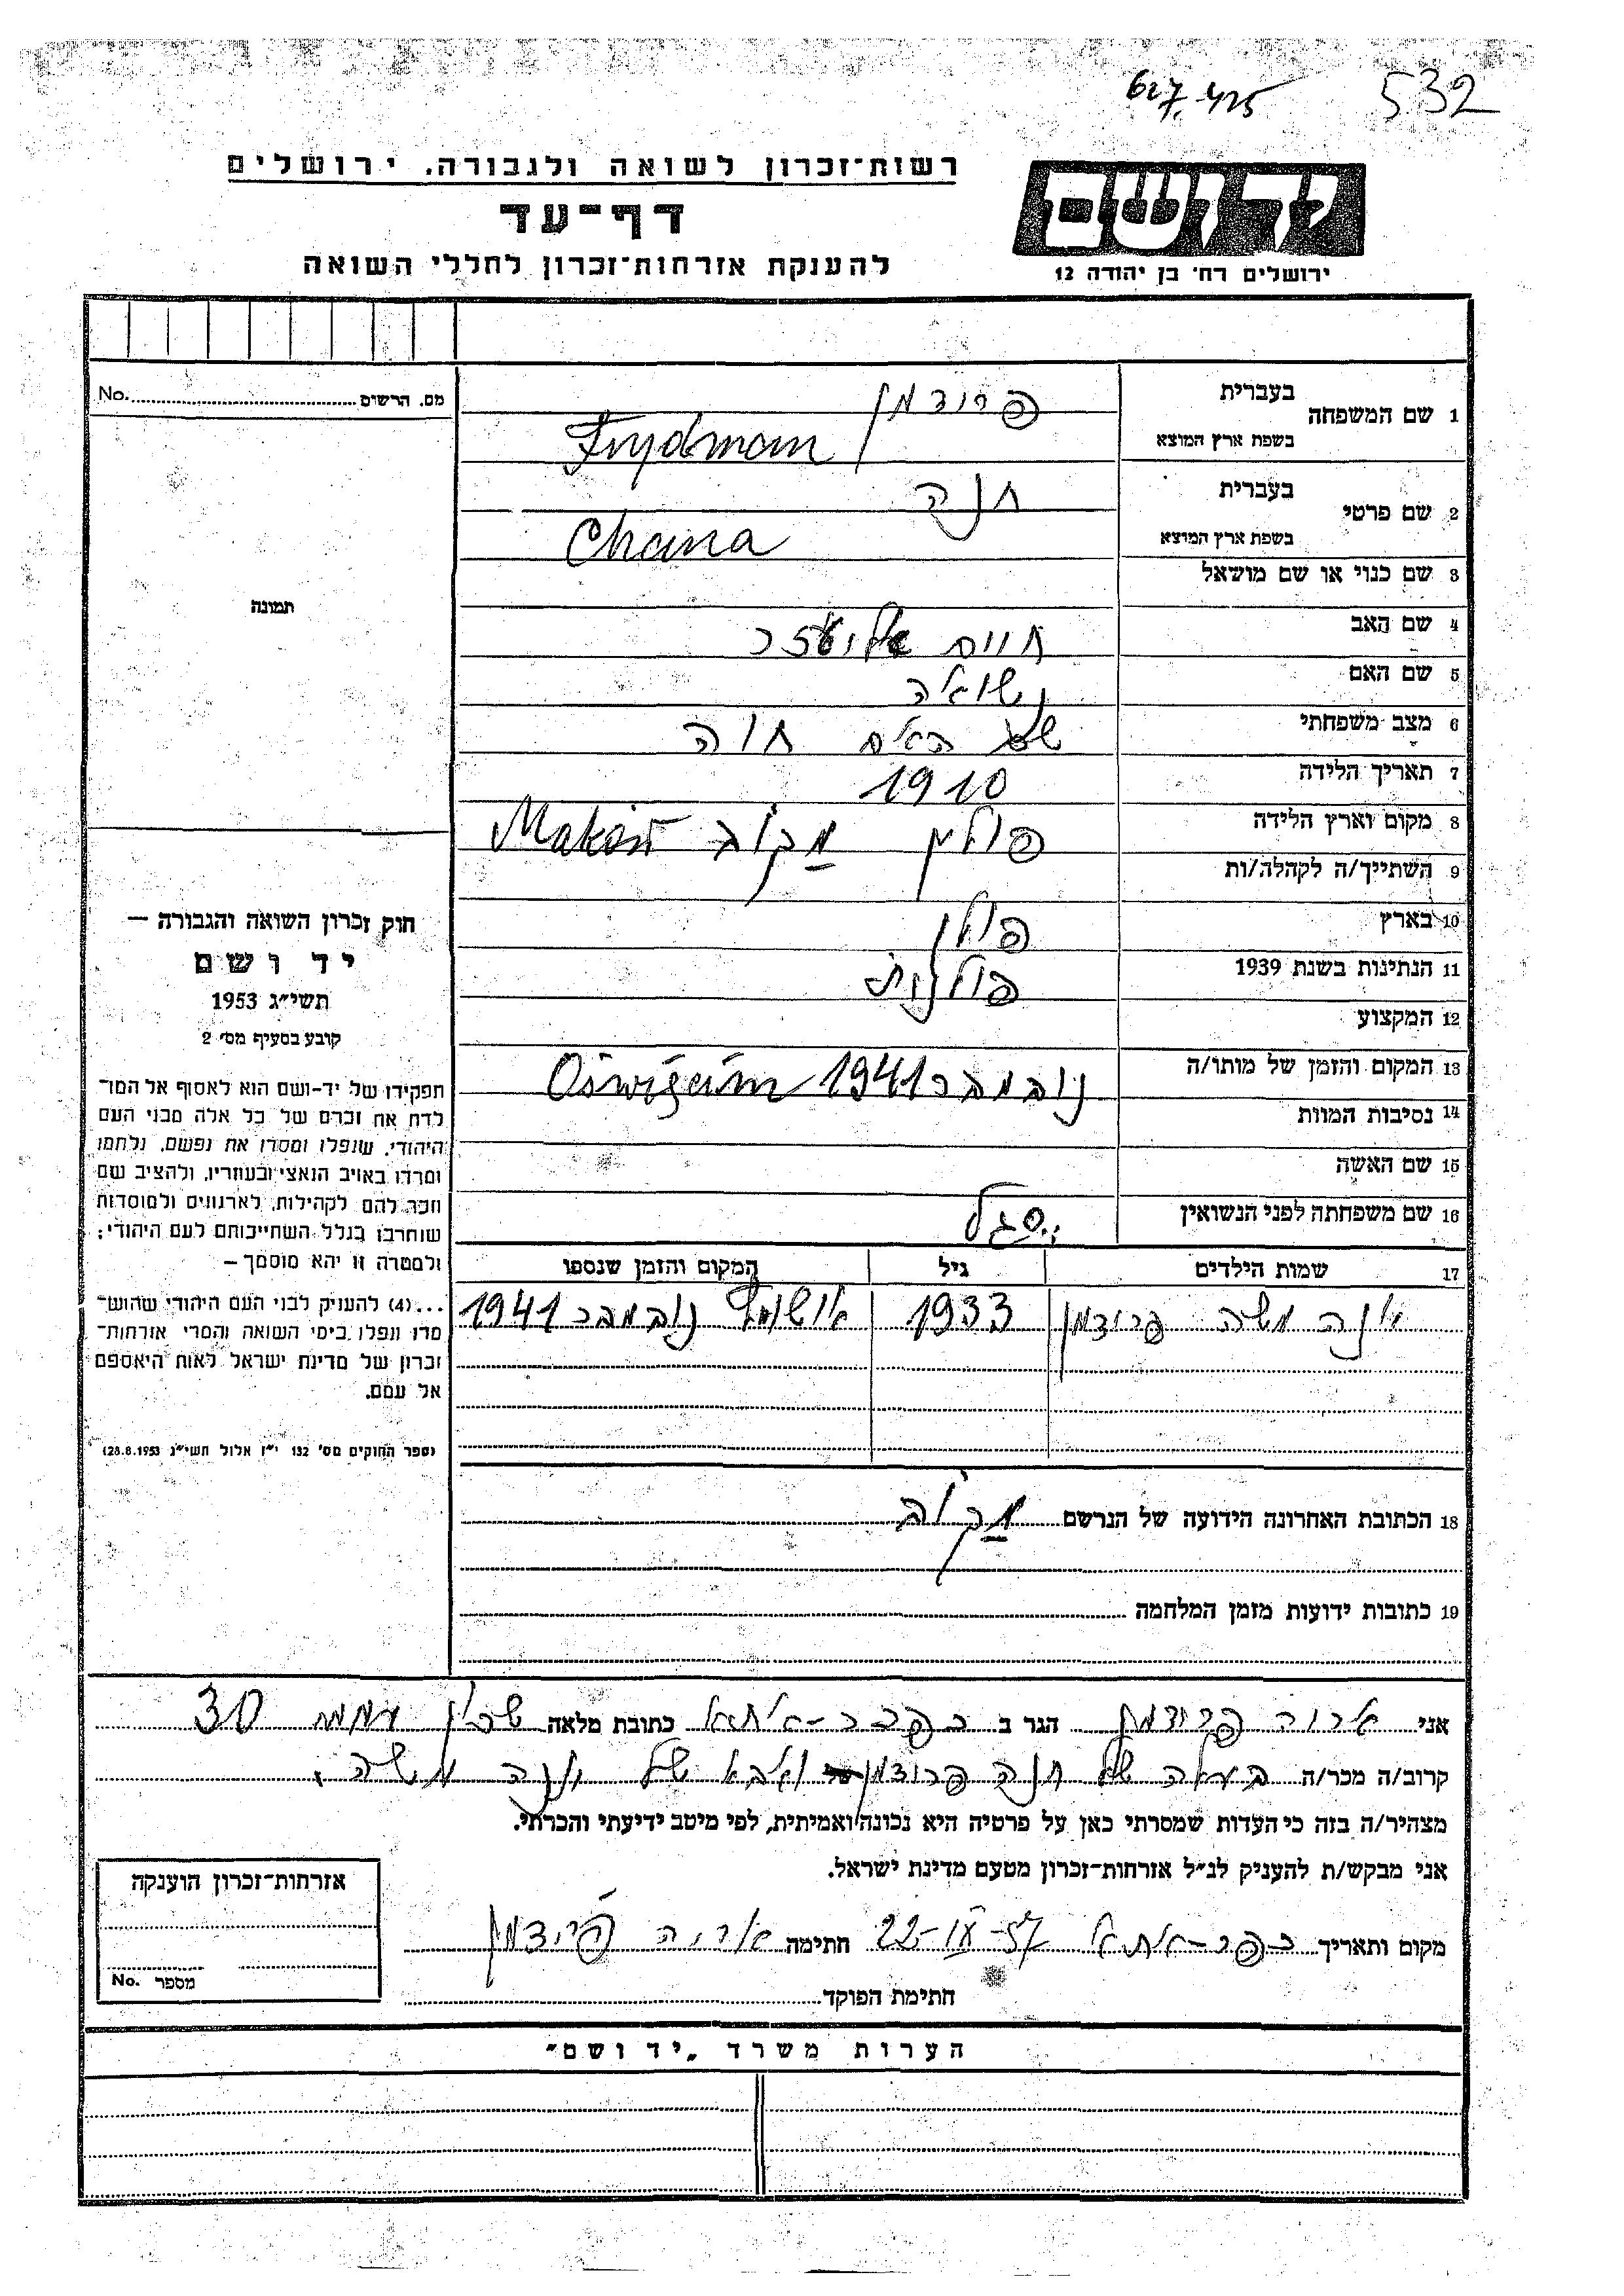 532
627.425
רשות־זכרון לשואה ולגבורה, ירושלים
דף־עד
להענקת אזרחות־זכרון לחללי השואה
יד ושם
ירושלים רח׳ בן יהודה 12
מס. הרשום No.
1 שם המשפחה בעברית פרידמן
בשפת ארץ המוצא Frydman
2 שם פרטי בעברית חנה
בשפת ארץ המוצא Chana
3 שם כנוי או שם מושאל
תמונה
4 שם האב חיים אליעזר
5 שם האם
6 מצב משפחתי נשואה
שם האם חוה
7 תאריך הלידה 1910
8 מקום וארץ הלידה פולין מקוב Maków
9 השתייך/ה לקהלה/ות
10 בארץ פולין
11 הנתינות בשנת 1939 פולנית
12 המקצוע
13 המקום והזמן של מותו/ה נובמבר 1941 Oświęcim
14 נסיבות המוות
15 שם האשה
16 שם משפחתה לפני הנשואין סגל
17 שמות הילדים גיל המקום והזמן שנספו
יונה משה פרידמן 1933 נובמבר 1941
18 הכתובת האחרונה הידועה של הנרשם מקוב
19 כתובות ידועות מזמן המלחמה
חוק זכרון השואה והגבורה –
יד ושם
תשי״ג 1953
קובע בסעיף מס׳ 2
תפקידו של יד־ושם הוא לאסוף אל המו־
לדת את זכרם של כל אלה מבני העם
היהודי, שנפלו ומסרו את נפשם, נלחמו
ומרדו באויב הנאצי ובעוזריו, ולהציב שם
וזכר להם לקהילות, לארגונים ולמוסדות
שנחרבו בגלל השתייכותם לעם היהודי;
ולמטרה זו יהא מוסמך –
...(4) להעניק לבני העם היהודי שהוש־
מדו ונפלו בימי השואה והמרי אזרחות־
זכרון של מדינת ישראל לאות היאספם
אל עמם.
(ספר החוקים מס׳ 132 י״ז אלול תשי״ג 28.8.1953)
אני אריה פרידמן הגר ב כפר־אתא כתובת מלאה שכון עממי 30
קרוב/ה מכר/ה בעלה של חנה פרידמן ואבא של יונה משה.
מצהיר/ה בזה כי העדות שמסרתי כאן על פרטיה היא נכונה ואמיתית, לפי מיטב ידיעתי והכרתי.
אני מבקש/ת להעניק לנ״ל אזרחות־זכרון מטעם מדינת ישראל.
מקום ותאריך כפר־אתא 22-IV-57 חתימה אריה פרידמן
חתימת הפוקד
אזרחות־זכרון הוענקה
מספר No.
הערות משרד „יד ושם״